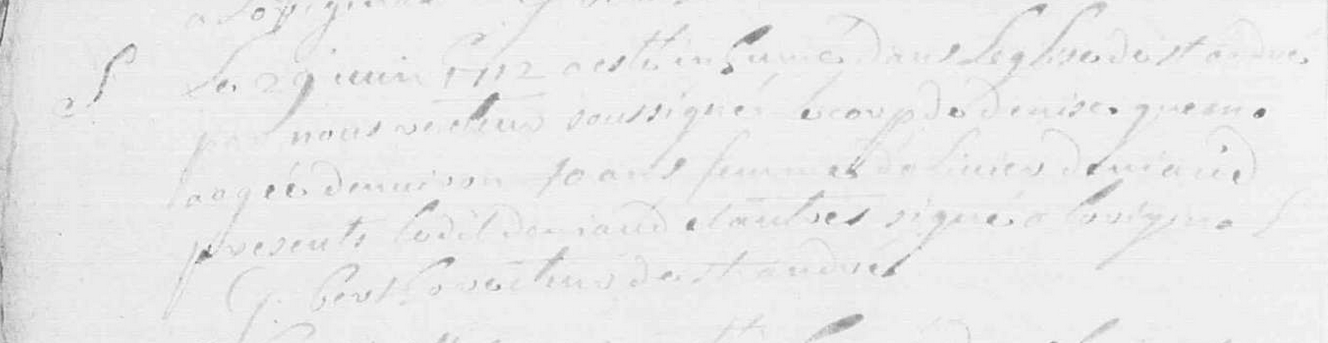 S Le 29 juin 1712 a esté inhumé dans Leglise de st andré
par nous recteur soussigné le corp de denise quem.
aagée denviron 70 ans femme de deniaud
presents ledit deniaud et autres signé a
G. recteur de st andré